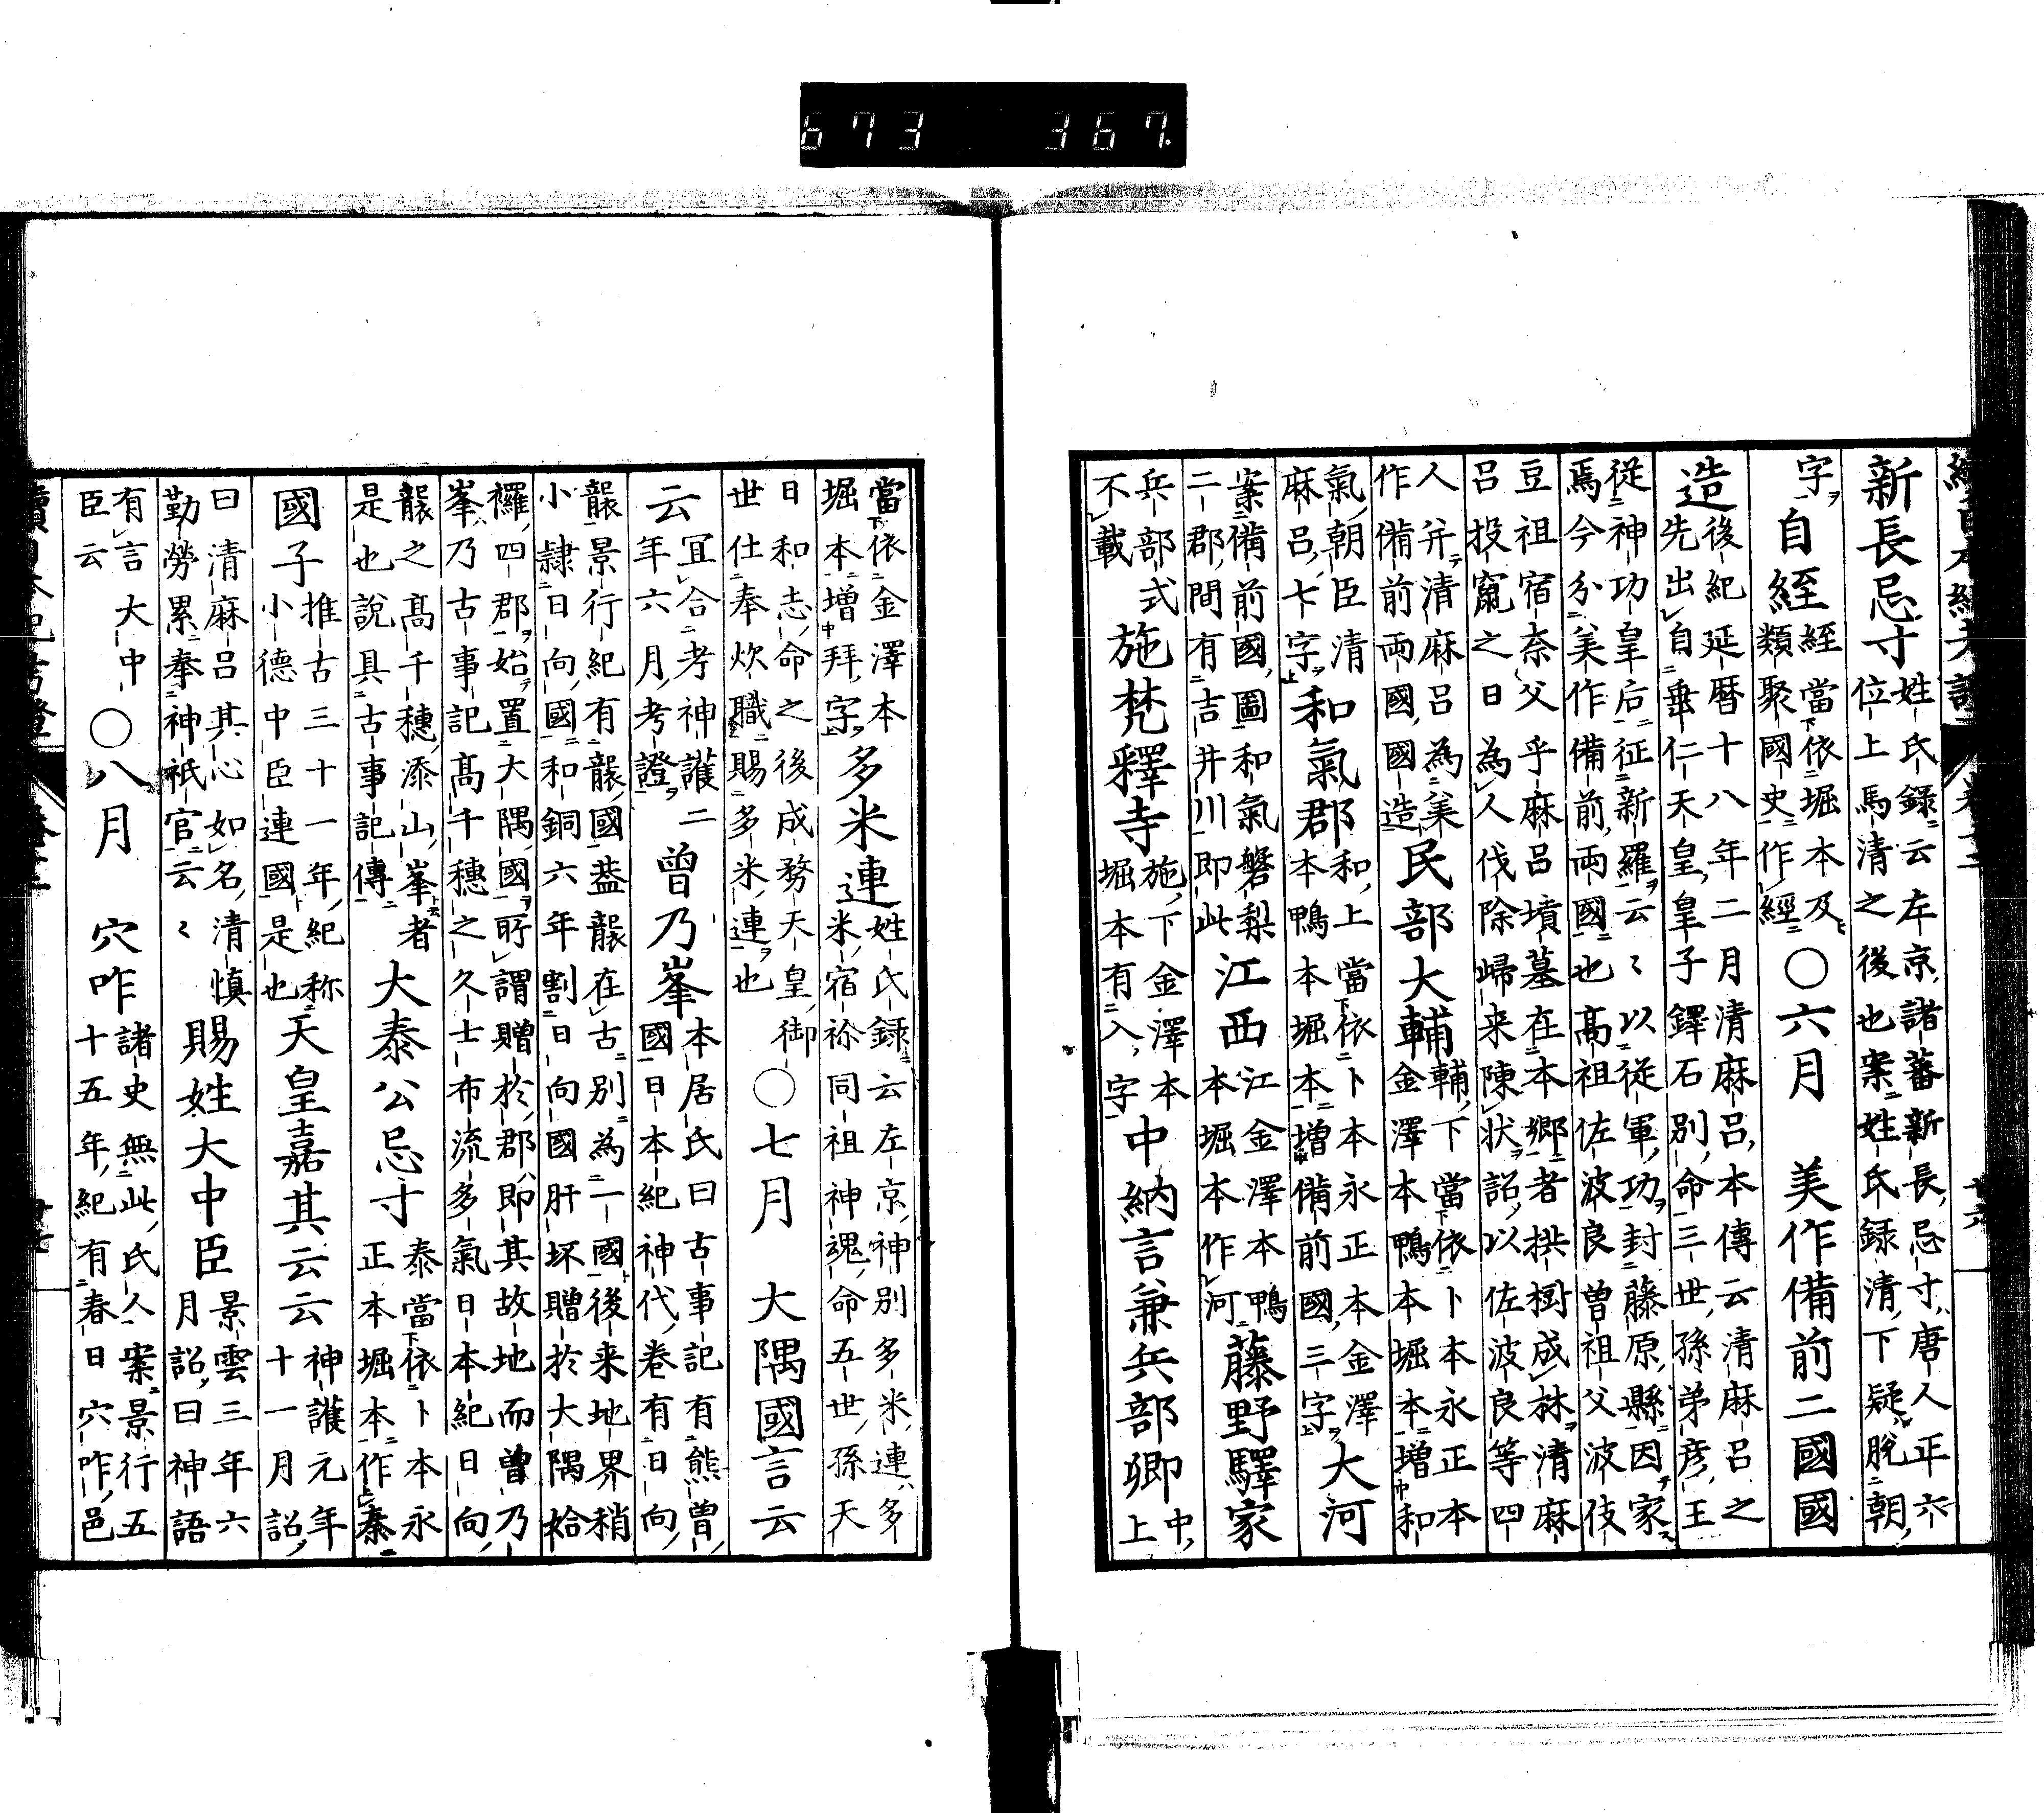 新長忌寸姓氏録云左京諸蕃新長忌寸唐人正六位上馬清之後也案姓氏録清下疑脱朝
字自絰絰當依堀本及類聚國史作經○六月　美作備前二國國
造後紀延暦十八年二月清麻呂本傳云清麻呂之先出自垂仁天皇皇子鐸石別命三世孫弟彦王
従神功皇后征新羅云〻以従軍功封藤原縣因家焉今分美作備前両國也高祖佐波良曽祖父波伎
豆祖宿奈父乎麻呂墳墓在本郷者拱樹成林清麻呂投竄之日為人伐除歸来陳状詔以佐波良等四
人并清麻呂為美作備前両國國造民部大輔輔下當依卜本永正本金澤本鴨本堀本増和
氣朝臣清麻呂七字和氣郡和上當依卜本永正本金澤本鴨本堀本増備前國三字大河
案備前國圖和氣磐梨二郡間有吉井川即此江西江金澤本鴨本堀本作河藤野驛家
兵部式不載施梵釋寺施下金澤本堀本有入字中納言兼兵部卿中上
當依金澤本堀本増拜字多米連姓氏録云左京神別多米連多米宿祢同祖神魂命五世孫天
日和志命之後成務天皇御世仕奉炊職賜多米連也○七月　大隅國言云
云宜合考神護二年六月考證曽乃峯本居氏曰古事記有熊曽國日本紀神代巻有日向
襲景行紀有襲國葢襲在古別為一國後来地界稍小隷日向國和銅六年割日向國肝坏贈於大隅姶
𧟌四郡始置大隅國所謂贈於郡即其故地而曽乃峯乃古事記高千穂之久士布流多氣日本紀日向
襲之高千穂添山峯者是也説具古事記傳大泰公忌寸泰當依卜本永正本堀本作秦
國子推古三十一年紀称小德中臣連國是也天皇嘉其云云神護元年十一月詔
曰清麻呂其心如名清慎勤勞累奉神祇官云〻賜姓大中臣景雲三年六月詔曰神語
有言大中臣云○八月　穴咋諸史無此氏人案景行五十五年紀有春日穴咋邑